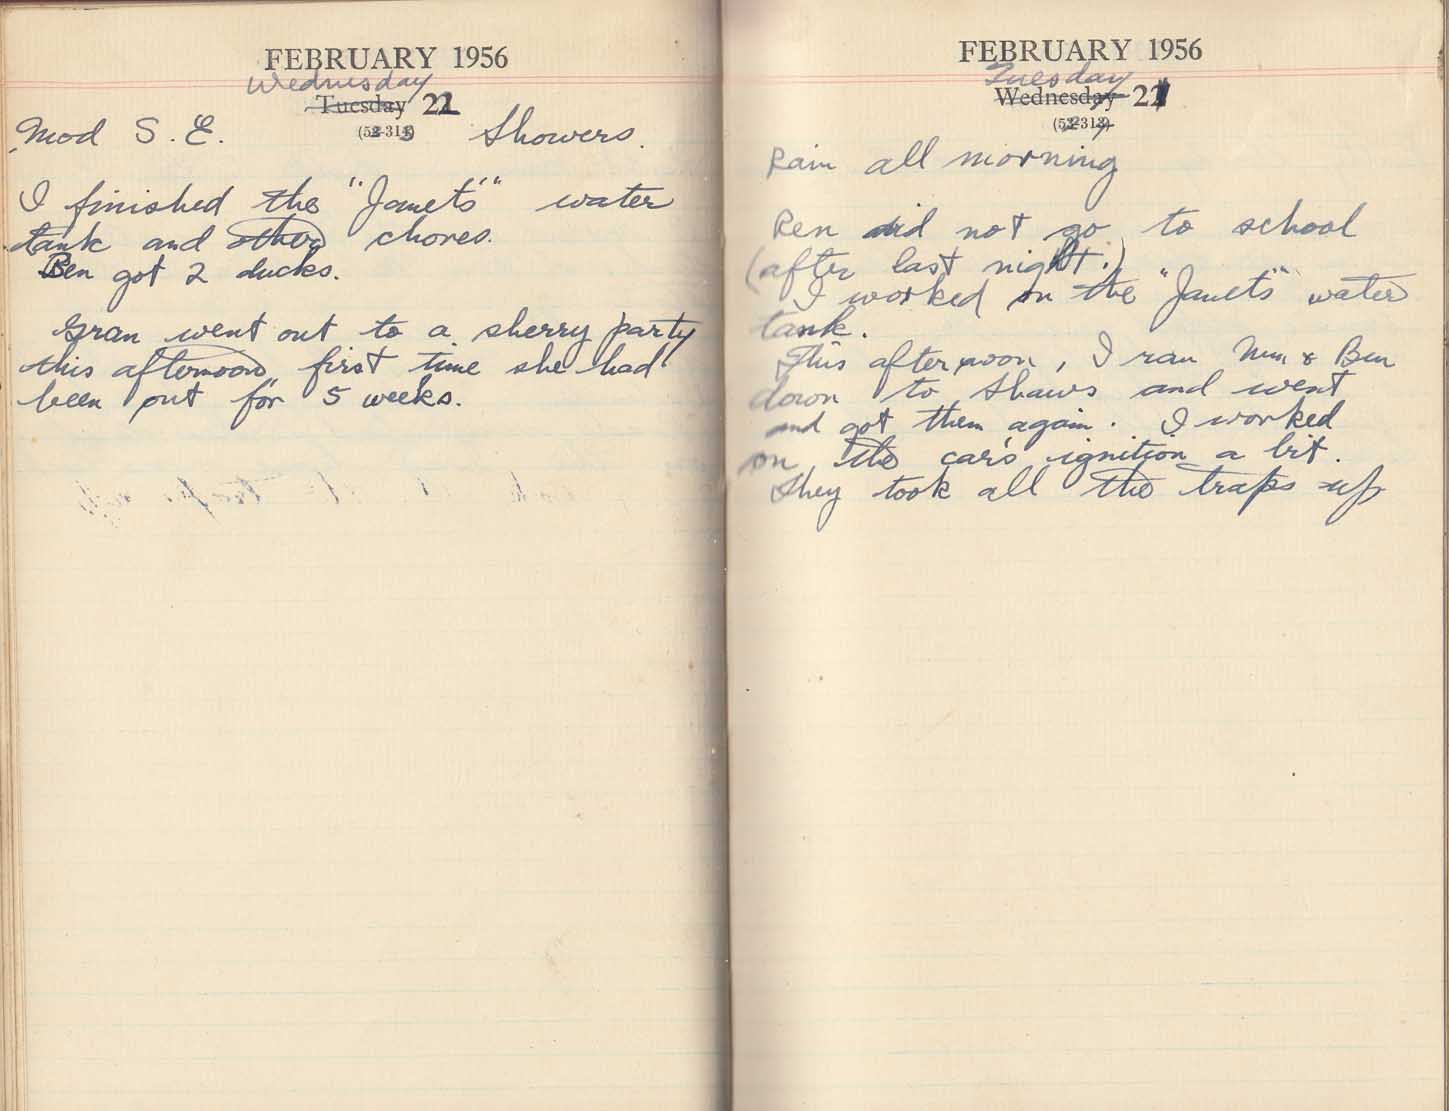 FEBRUARY 1956
Wednesday
Tuesday 22
Mod S. E. Showers.
I finished the "Janet's" water
tank and other chores.
Ben got 2 ducks.
Gran went out to a sherry party
this afternoon, first time she had
been out for 5 weeks.
FEBRUARY 1956
Tuesday
Wednesday 21
Rain all morning
Ben did not go to school
(after last night.)
I worked on the "Janet's" water
tank.
This afternoon, I ran Mum & Ben
down to Shaws and went
and got them again. I worked
on the car's ignition a bit.
They took all the traps up